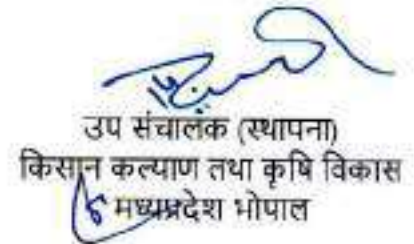 उप संचालक (स्थापना)
किसान कल्याण तथा कृषि विकास
मध्यप्रदेश भोपाल